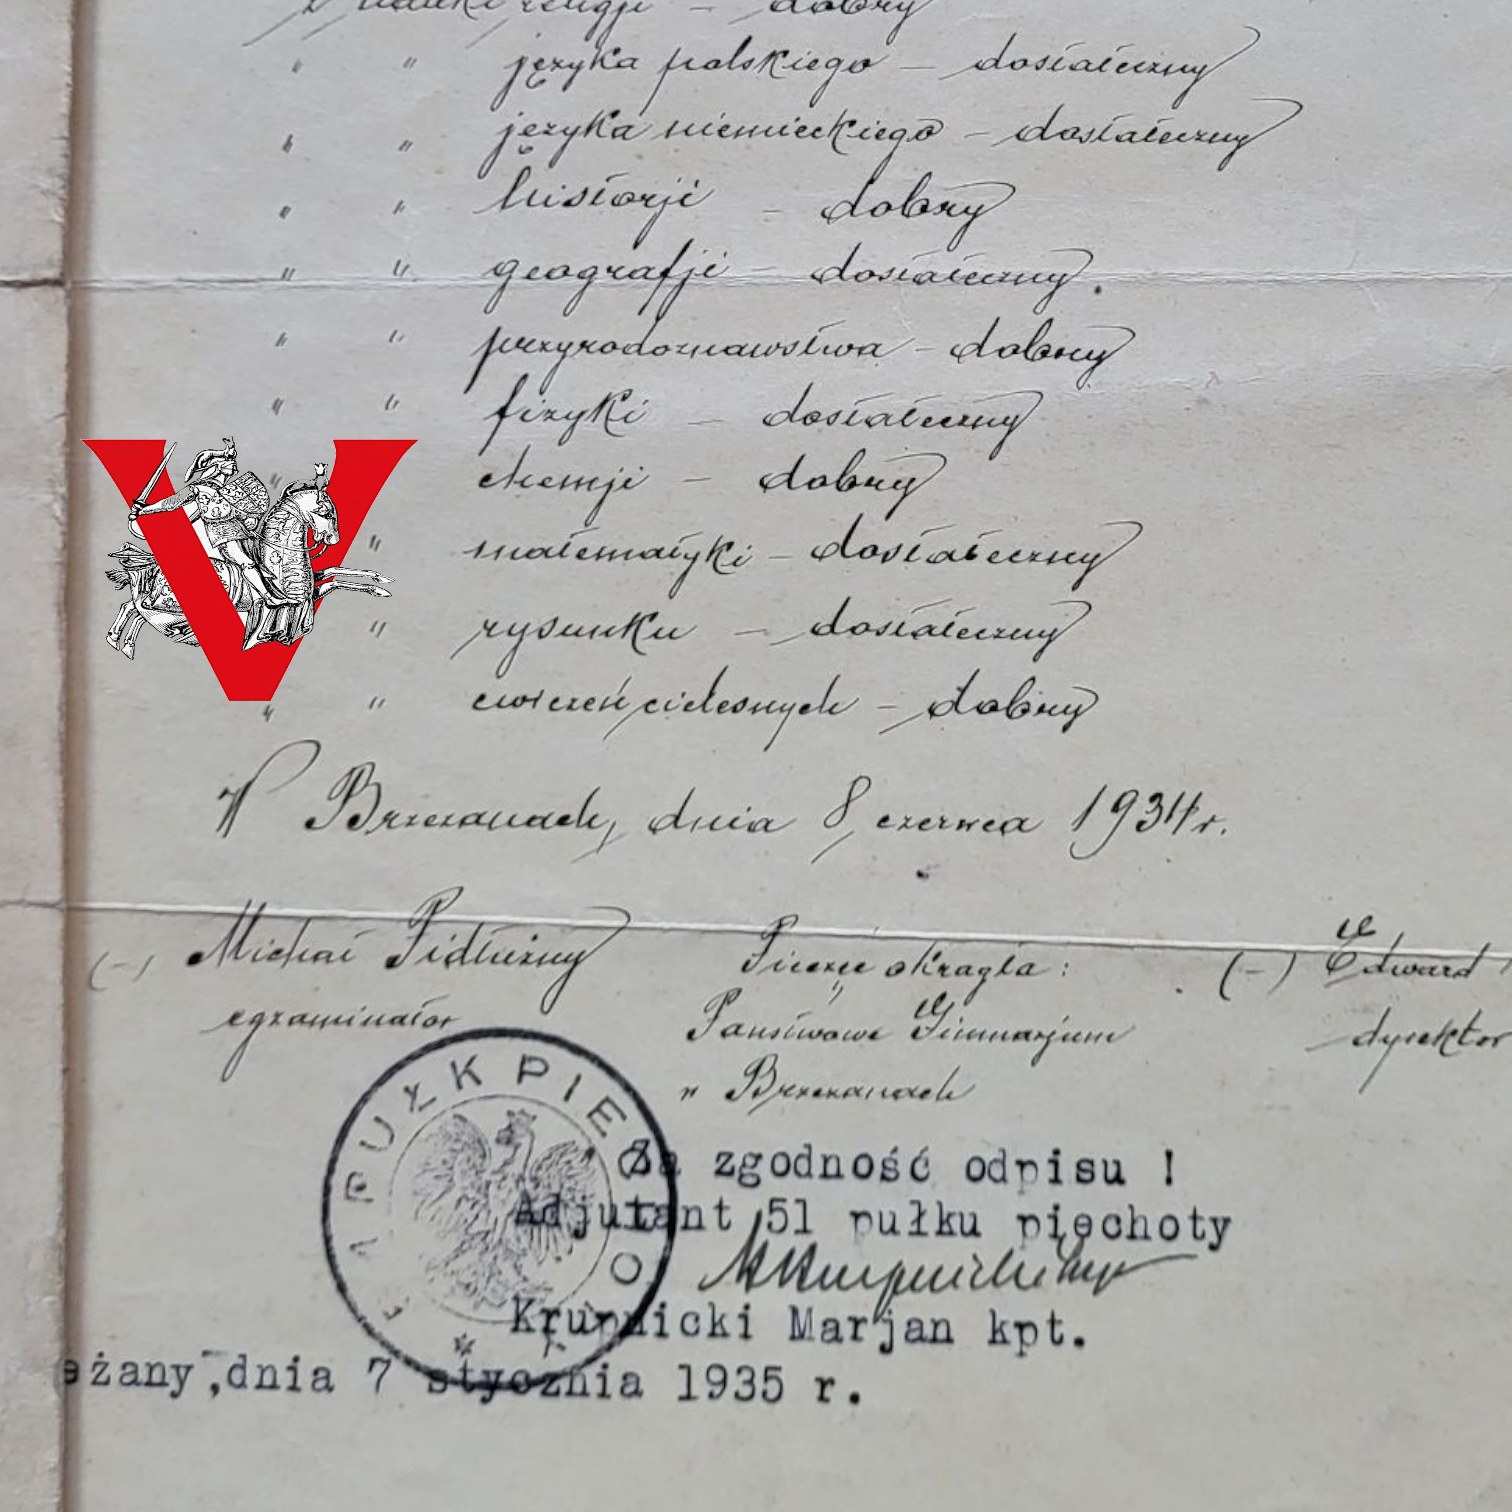 z nauki religji – dobry
" " języka polskiego – dostateczny
" " języka niemieckiego – dostateczny
" " historji – dobry
" " geografji – dostateczny.
" " przyrodoznawstwa – dobry
" " fizyki – dostateczny
" chemji – dobry
" matematyki – dostateczny
" rysunku – dostateczny
" " ćwiczeń cielesnych – dobry
W Brzeżanach, dnia 8 czerwca 1934 r.
(–) Michał Pidłużny Pieczęć okrągła: (–) Edward
egzaminator Państwowe Gimnazjum dyrektor
w Brzeżanach
PUŁK PIECHOTY
Za zgodność odpisu !
Adjutant 51 pułku piechoty
Krupnicki Marjan kpt.
eżany, dnia 7 stycznia 1935 r.
V